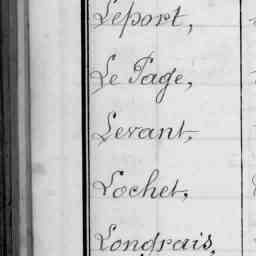 Leport,
Le Page,
Levant,
Lochet,
Longrais,